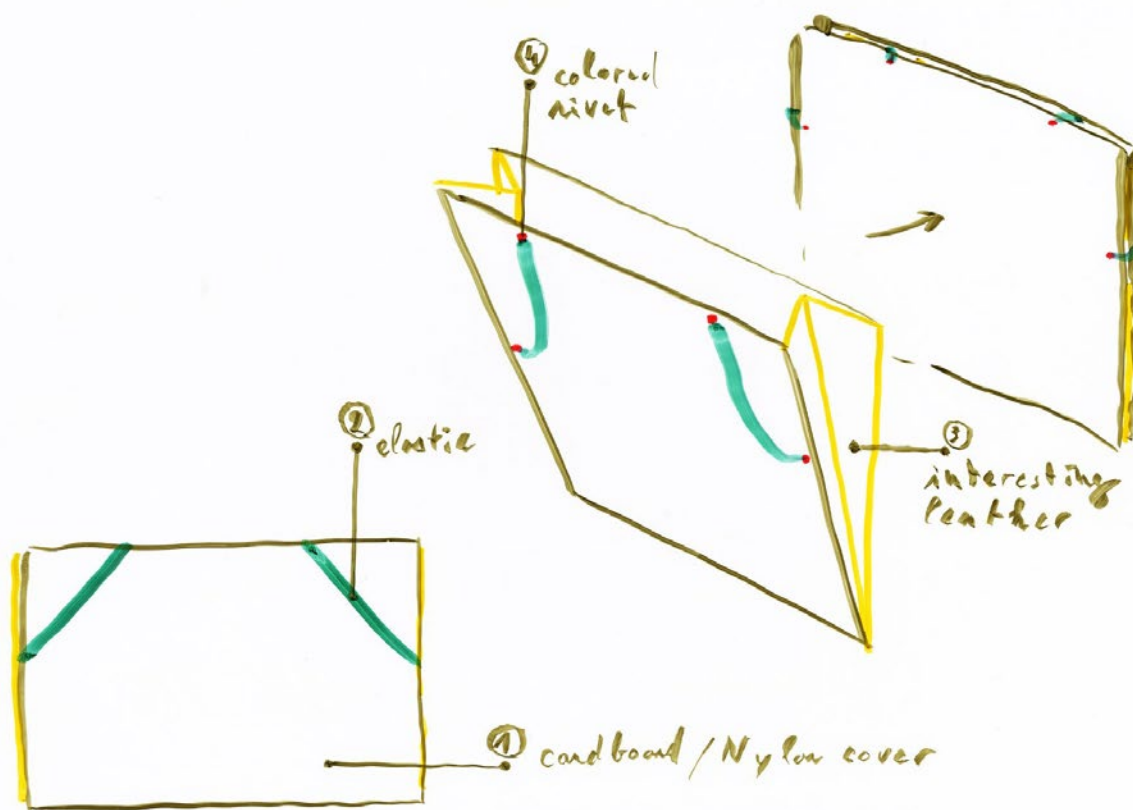 ④ colored
rivet
② elastic
③
interesting
leather
① cardboard / Nylon cover